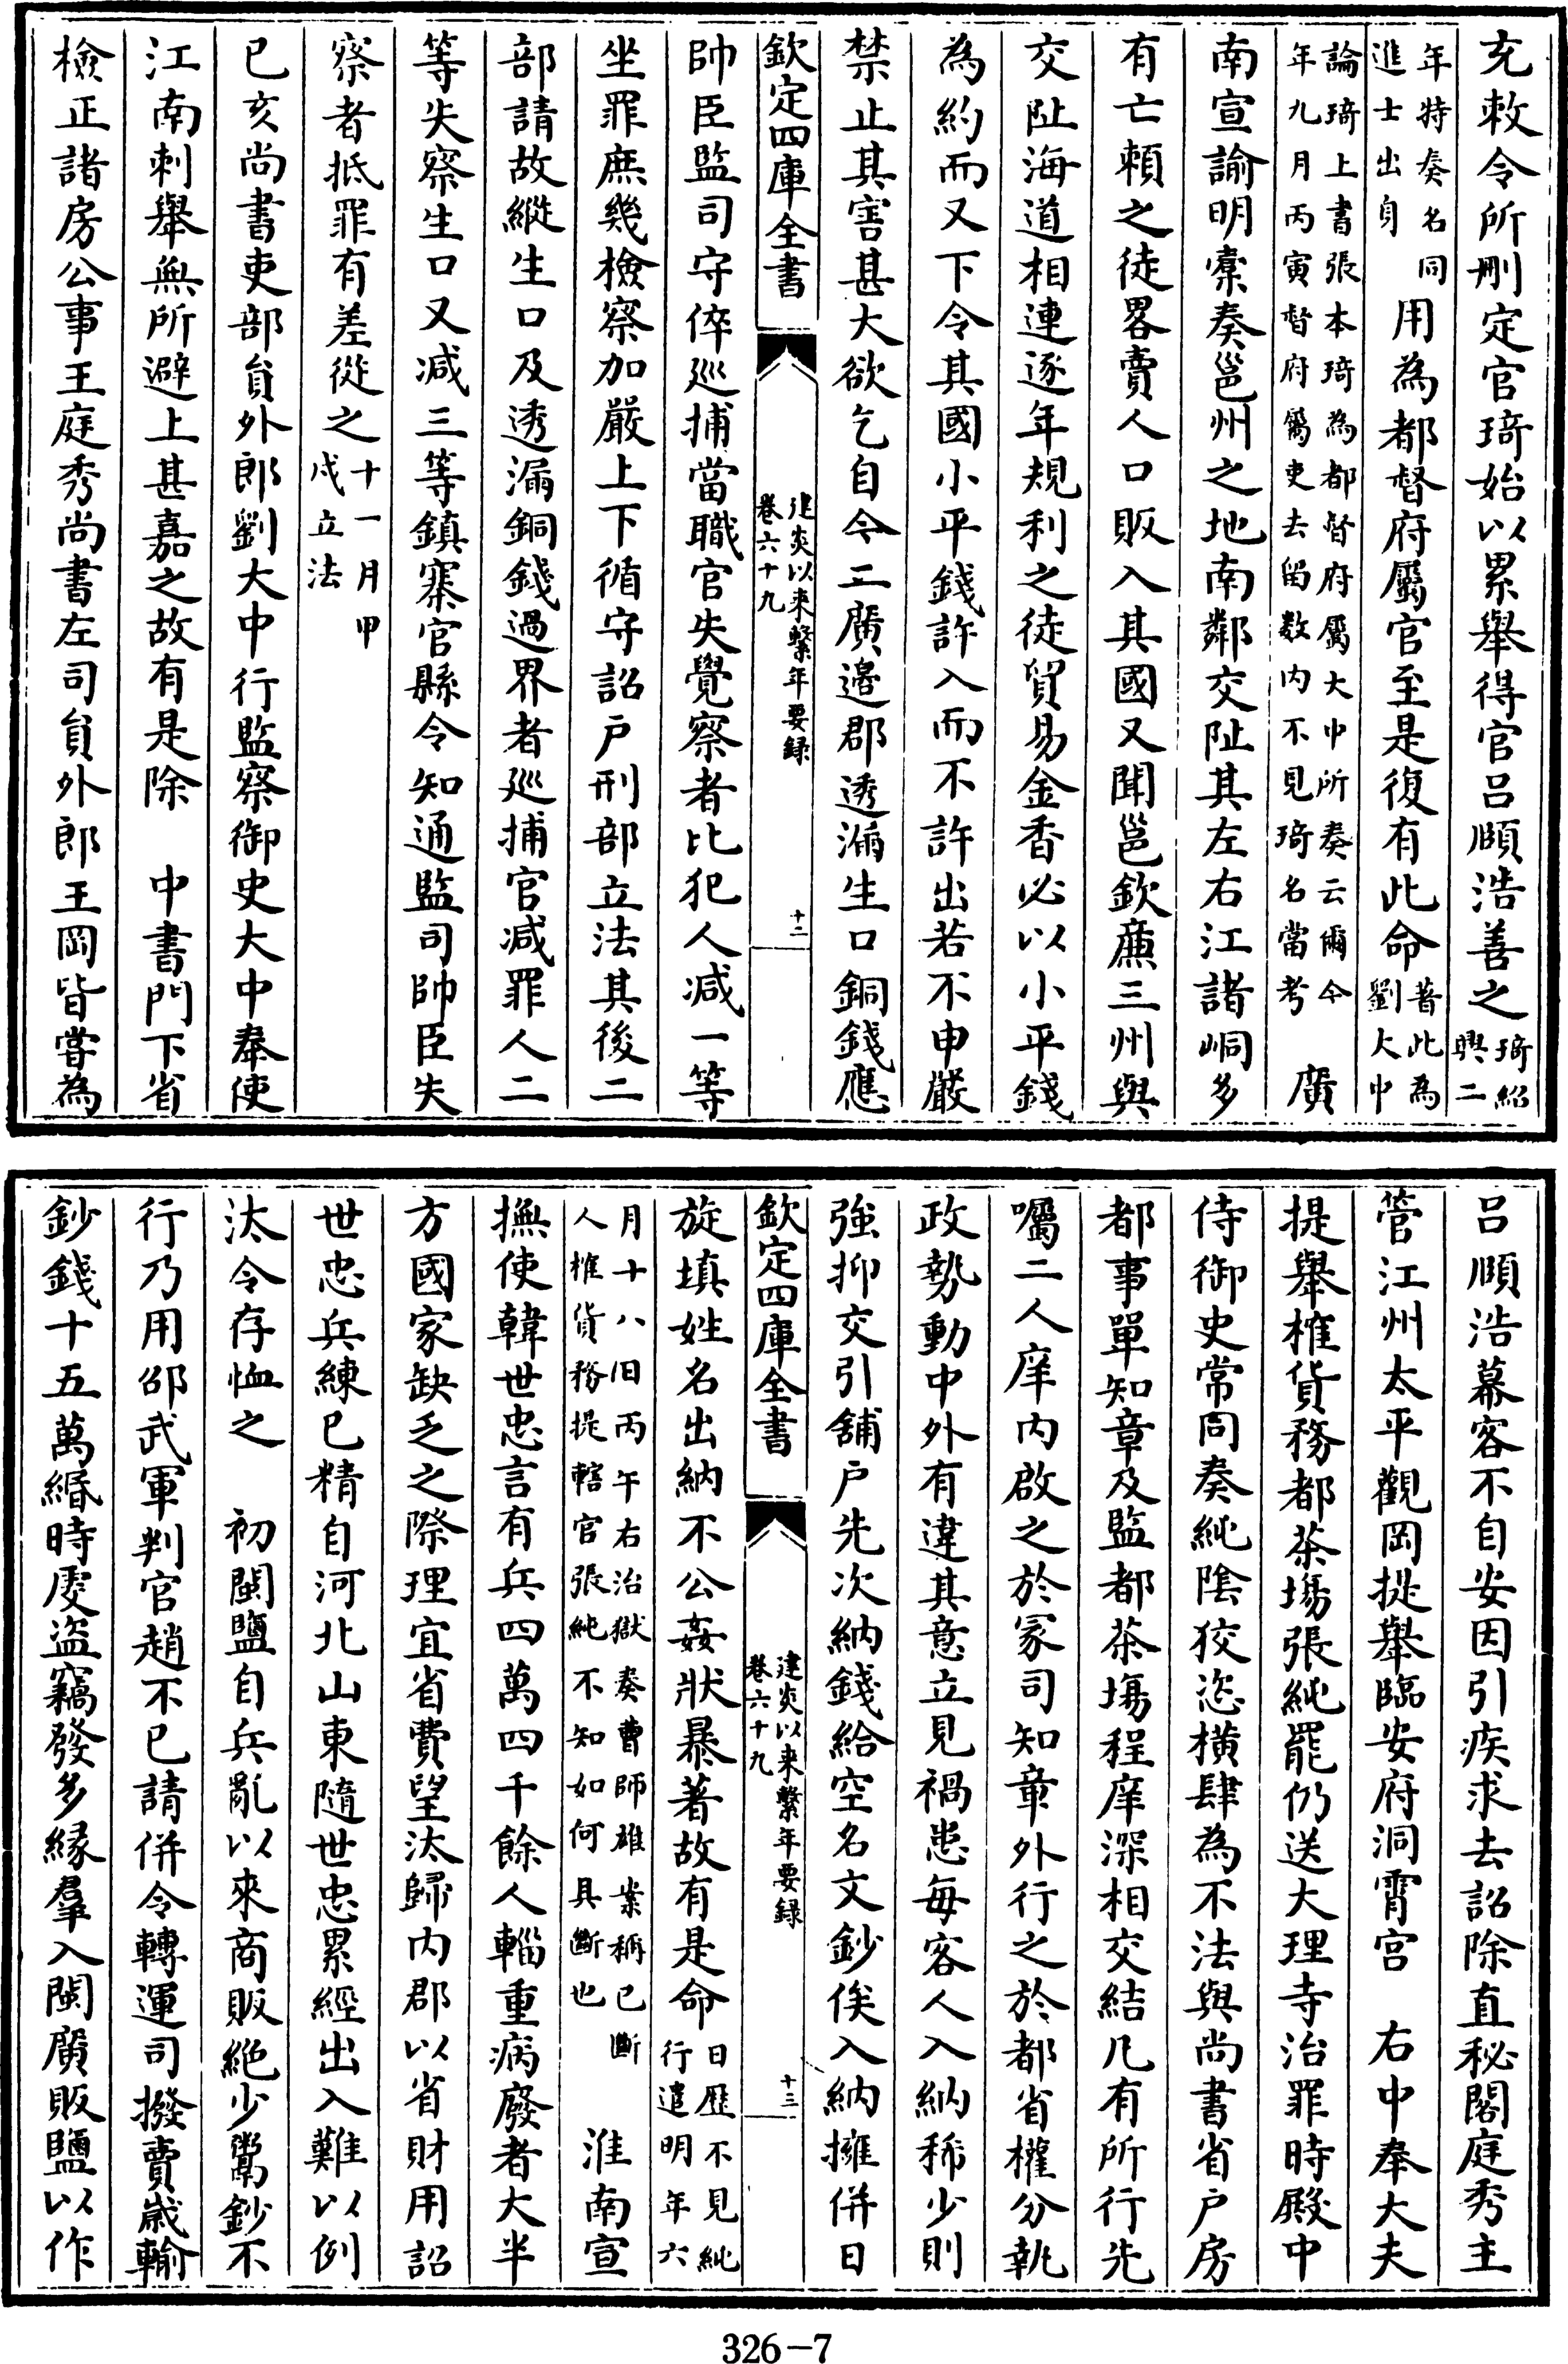 充敕令所刪定官琦始以累舉得官呂頤浩善之琦紹興二
年特奏名同進士出身用為都督府屬官至是復有此命著此為劉大中
論琦上書張本琦為都督府屬大中所奏云爾今年九月丙寅督府屬吏去留數内不見琦名當考 廣
南宣諭明橐奏邕州之地南鄰交阯其左右江諸峒多
有亡賴之徒畧賣人口販入其國又聞邕欽廉三州與
交阯海道相連逐年規利之徒貿易金香必以小平錢
為約而又下令其國小平錢許入而不許出若不申嚴
禁止其害甚大欲乞自今二廣邊郡透漏生口銅錢應
欽定四庫全書 建炎以来繫年要録 卷六十九 十二
帥臣監司守倅巡捕當職官失覺察者比犯人减一等
坐罪庶幾檢察加嚴上下循守詔户刑部立法其後二
部請故縱生口及透漏銅錢過界者巡捕官减罪人二
等失察生口又减三等鎮寨官縣令知通監司帥臣失
察者抵罪有差從之十一月甲戌立法
已亥尚書吏部員外郎劉大中行監察御史大中奉使
江南刺舉無所避上甚嘉之故有是除 中書門下省
檢正諸房公事王庭秀尚書左司員外郎王岡皆嘗為
吕頤浩幕客不自安因引疾求去詔除直秘閣庭秀主
管江州太平觀岡提舉臨安府洞霄宫 右中奉大夫
提舉榷貨務都茶場張純罷仍送大理寺治罪時殿中
侍御史常同奏純陰狡恣横肆為不法與尚書省户房
都事單知章及監都茶場程庠深相交結凡有所行先
囑二人庠内啟之於冢司知章外行之於都省權分執
政勢動中外有違其意立見禍患每客人入納稀少則
強抑交引舖户先次納錢給空名文鈔俟入納擁併日
欽定四庫全書 建炎以来繫年要録 卷六十九 十三
旋填姓名出納不公姦狀暴著故有是命日歷不見純行遣明年六
月十八日丙午右治獄奏曹師雄案稱已斷人榷貨務提轄官張純不知如何具斷也 淮南宣
撫使韓世忠言有兵四萬四千餘人輜重病廢者大半
方國家缺乏之際理宜省費望汰歸内郡以省財用詔
世忠兵練已精自河北山東隨世忠累經出入難以例
汰令存恤之 初閩鹽自兵亂以來商販絶少鬻鈔不
行乃用邵武軍判官趙不已請併令轉運司撥賣歲輸
鈔錢十五萬緡時虔盗竊發多緣羣入閩廣販鹽以作
326-7